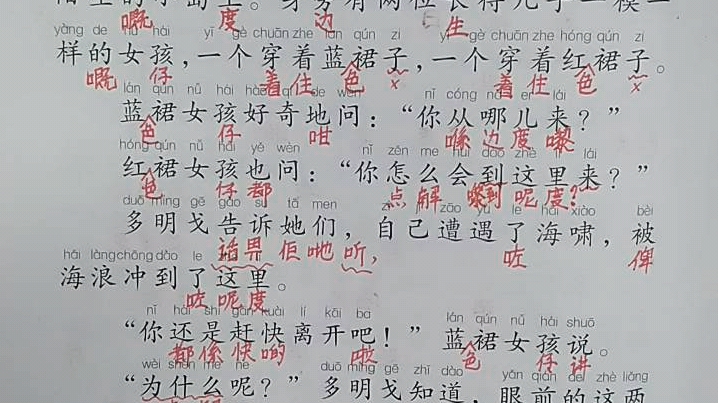 嘅 度 边 生
yàng de nǚ hái yí gè chuān zhe lán qún zi yí gè chuān zhe hóng qún zi
样的女孩,一个穿着蓝裙子,一个穿着红裙子。
嘅 仔 着住 色 x 着住 色 x
lán qún nǚ hái hào qí de wèn nǐ cóng nǎ er lái
蓝裙女孩好奇地问:“你从哪儿来?”
色 仔 咁 喺边度嚟
hóng qún nǚ hái yě wèn nǐ zěn me huì dào zhè lǐ lái
红裙女孩也问:“你怎么会到这里来?”
色 仔 都 点解 嚟到呢度?
duō míng gē gào su tā men zì jǐ zāo yù le hǎi xiào bèi
多明戈告诉她们,自己遭遇了海啸,被
话畀佢哋听, 咗 俾
hǎi làng chōng dào le
海浪冲到了这里。
咗呢度
nǐ hái shì gǎn kuài lí kāi ba lán qún nǚ hái shuō
“你还是赶快离开吧!”蓝裙女孩说。
都係快啲 啦 色 仔讲
wèi shén me ne duō míng gē zhī dào yǎn qián de zhè liǎng
“为什么呢?”多明戈知道,眼前的这两